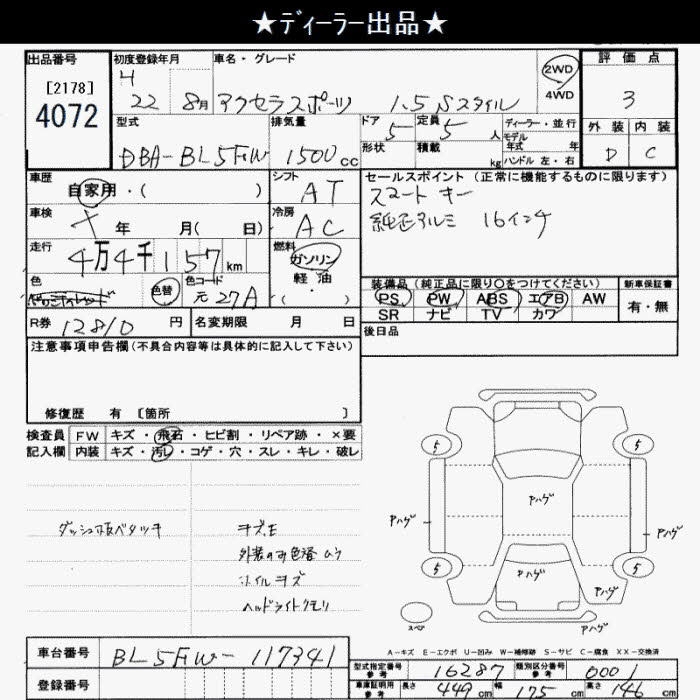 ★ディーラー出品★
出品番号 初度登録年月 車名・グレード 評価点
[2178] H 2WD
4072 22 8月 アクセラスポーツ 1.5Sスタイル 4WD 3
型式 排気量 ドア 定員 ディーラー・並行 外装 内装
DBA-BL5FW 1500cc 5 5人 モデル年式 年 D C
形状 積載 kg ハンドル 左・右
車歴 シフト セールスポイント (正常に機能するものに限ります)
自家用・( ) AT スマートキー
車検 冷房 純正アルミ 16インチ
年 月( 日) AC
走行 燃料
4万4千157km ガソリン・軽油・( )
色 色替 色コード 装備品 (純正品に限り○をつけてください) 新車保証書
元27A PS PW ABS エアB AW 有・無
SR ナビ TV カワ
R券 12810円 名変期限 月 日 後日品
注意事項申告欄(不具合内容等は具体的に記入して下さい)
修復歴 有 [箇所 ]
検査員 FW キズ・飛石・ヒビ割・リペア跡・×要
記入欄 内装 キズ・汚レ・コゲ・穴・スレ・キレ・破レ
5 5
アハゲ
アハゲ アハゲ
ダッシュ板ベタツキ
外装のみ色替
ホイルキズ
ヘッドライトクモリ
5 5
アハゲ
アハゲ
スペア アハゲ
A-キズ E-エクボ U-凹み W-補修跡 S-サビ C-腐食 XX-交換済
車台番号 BL5FW-117341
登録番号
型式指定番号 参考 16287 類別区分番号 参考 0001
車庫証明用 参考 長さ 449cm 幅 175cm 高さ 146cm